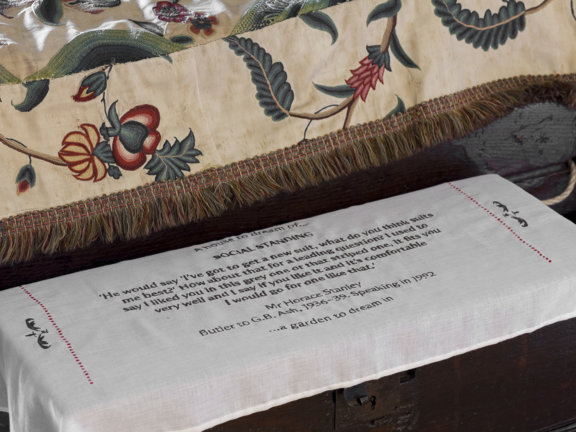 A house to dream of...
SOCIAL STANDING
'He would say 'I've got to get a new suit, what do you think suits
me best?' How about that for a leading question? I used to
say I liked you in this grey one or that striped one, it fits you
very well and I say if you like it and it's comfortable
I would go for one like that.'
Mr Horace Stanley
Butler to G.B. Ash, 1936-39. Speaking in 1992
...a garden to dream in